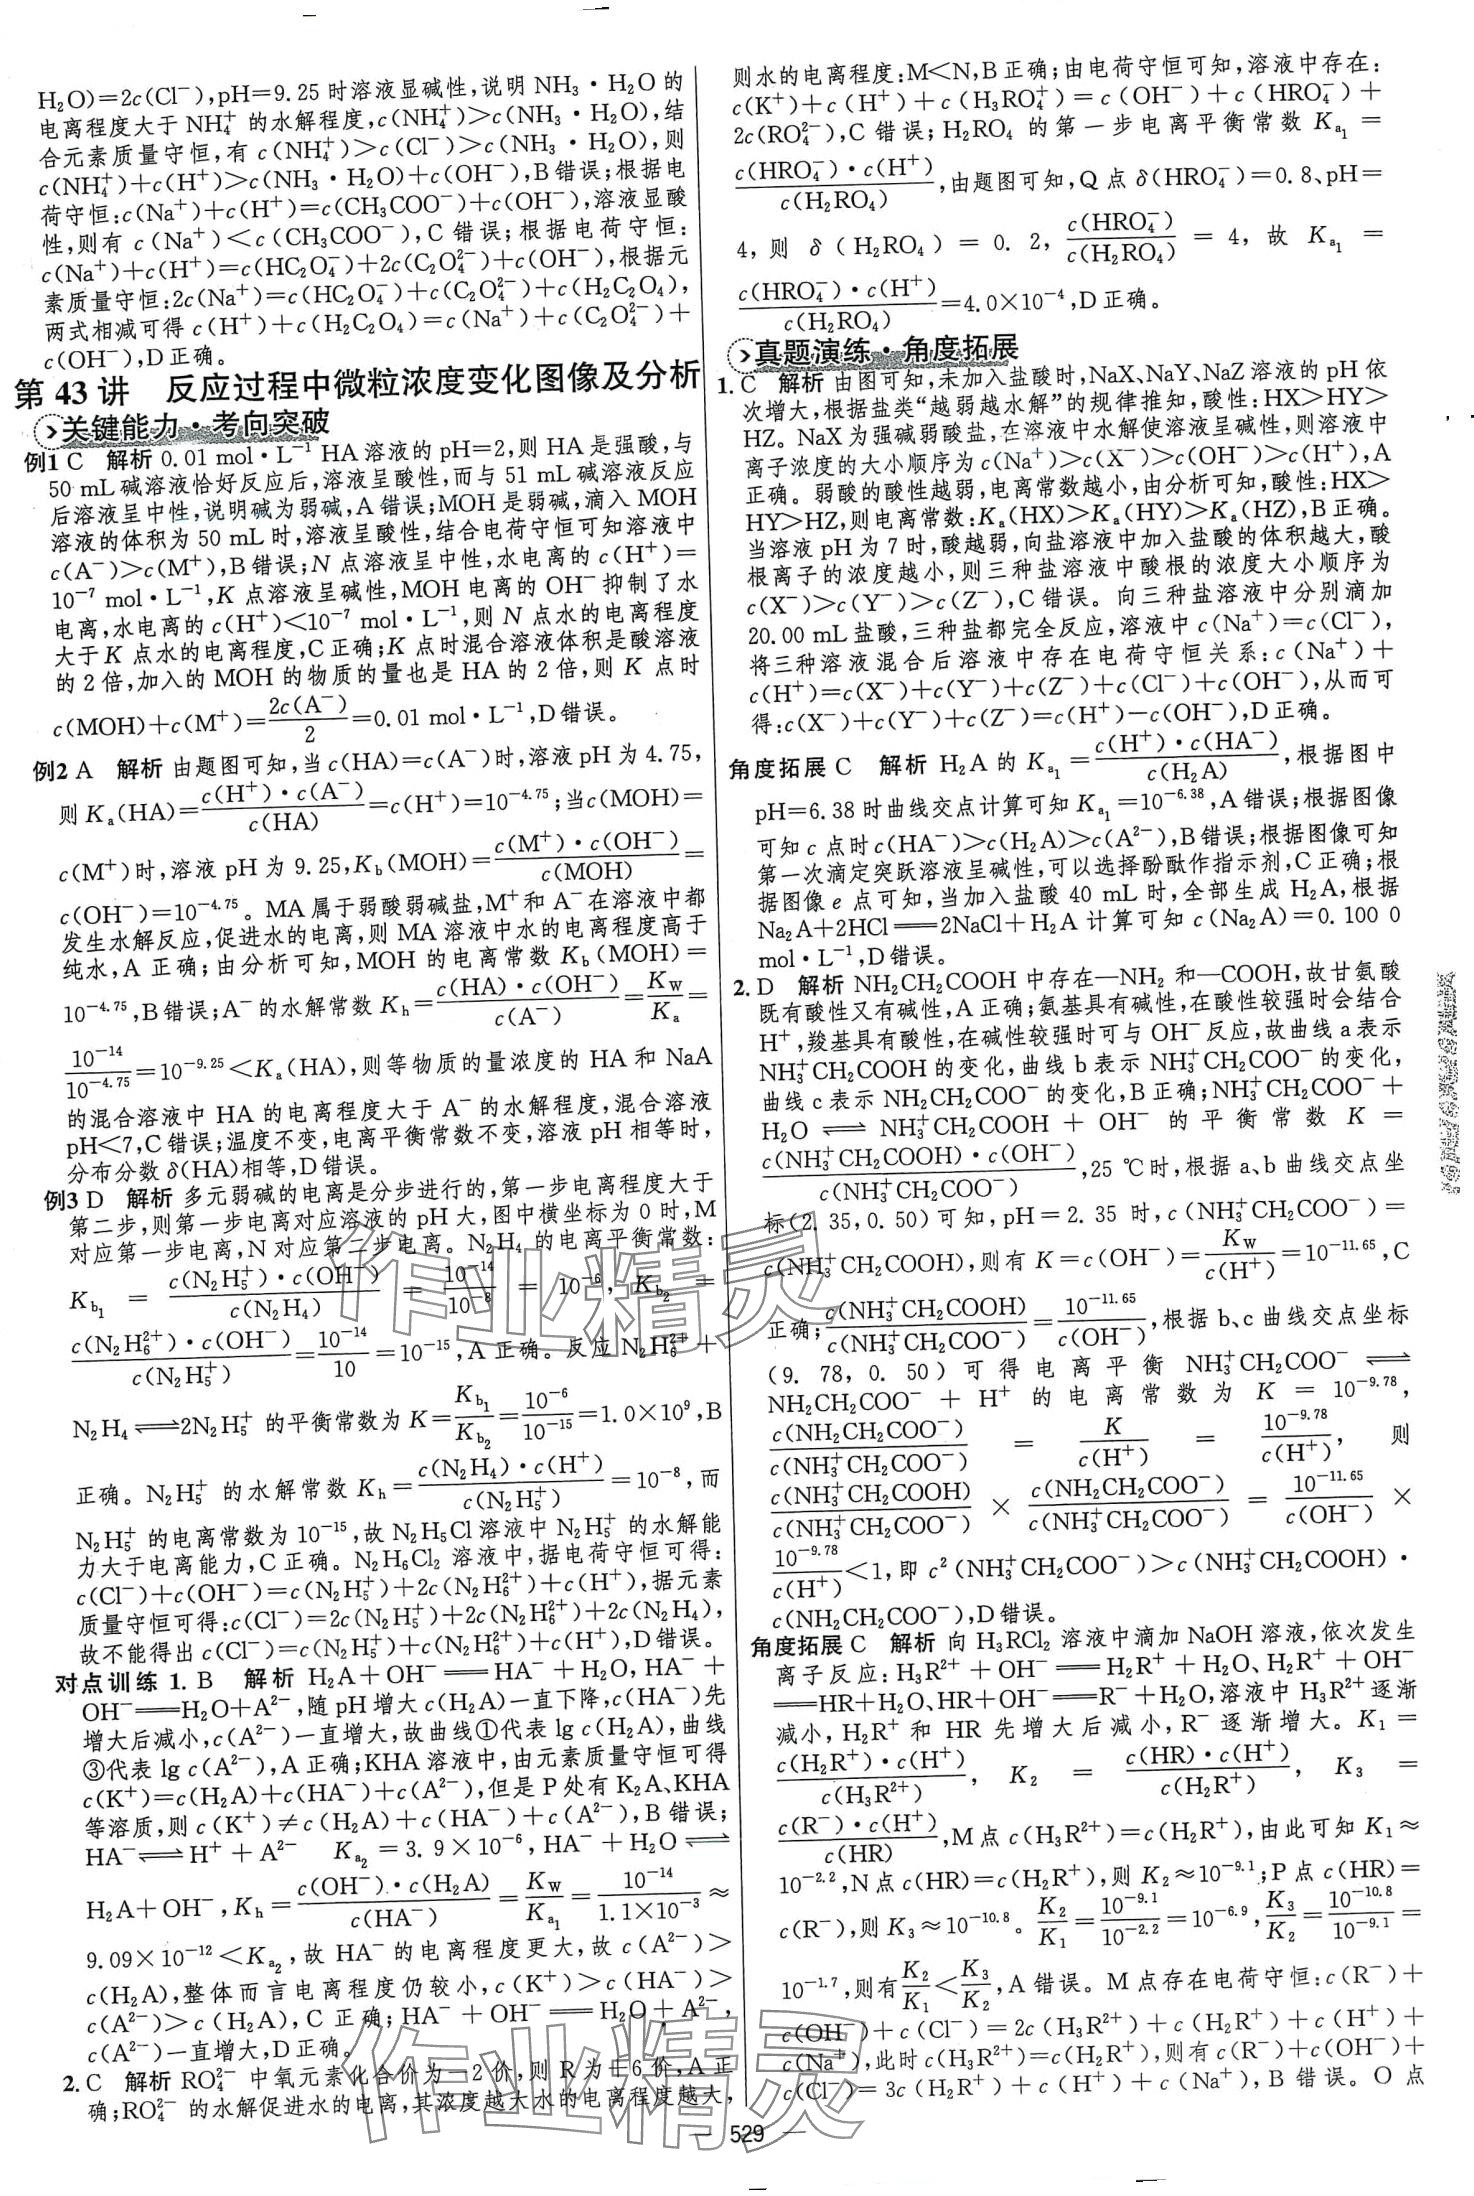 H₂O)=2c(Cl⁻),pH=9.25时溶液显碱性,说明 NH₃·H₂O 的
电离程度大于 NH₄⁺ 的水解程度,c(NH₄⁺)>c(NH₃·H₂O),结
合元素质量守恒,有 c(NH₄⁺)>c(Cl⁻)>c(NH₃·H₂O),则
c(NH₄⁺)+c(H⁺)>c(NH₃·H₂O)+c(OH⁻),B错误;根据电
荷守恒:c(Na⁺)+c(H⁺)=c(CH₃COO⁻)+c(OH⁻),溶液显酸
性,则有 c(Na⁺)<c(CH₃COO⁻),C错误;根据电荷守恒:
c(Na⁺)+c(H⁺)=c(HC₂O₄⁻)+2c(C₂O₄²⁻)+c(OH⁻),根据元
素质量守恒:2c(Na⁺)=c(HC₂O₄⁻)+c(C₂O₄²⁻)+c(H₂C₂O₄),
两式相减可得 c(H⁺)+c(H₂C₂O₄)=c(Na⁺)+c(C₂O₄²⁻)+
c(OH⁻),D正确。
第43讲 反应过程中微粒浓度变化图像及分析
关键能力·考向突破
例1 C 解析 0.01 mol·L⁻¹ HA 溶液的 pH=2,则 HA 是强酸,与
50 mL碱溶液恰好反应后,溶液呈酸性,而与 51 mL碱溶液反应
后溶液呈中性,说明碱为弱碱,A错误;MOH是弱碱,滴入 MOH
溶液的体积为 50 mL时,溶液呈酸性,结合电荷守恒可知溶液中
c(A⁻)>c(M⁺),B错误;N点溶液呈中性,水电离的 c(H⁺)=
10⁻⁷ mol·L⁻¹,K点溶液呈碱性,MOH电离的 OH⁻ 抑制了水
电离,水电离的 c(H⁺)<10⁻⁷ mol·L⁻¹,则 N 点水的电离程度
大于 K 点水的电离程度,C正确;K点时混合溶液体积是酸溶液
的2倍,加入的 MOH 的物质的量也是 HA 的2倍,则 K 点时
c(MOH)+c(M⁺)=2c(A⁻)/2=0.01 mol·L⁻¹,D错误。
例2 A 解析 由题图可知,当 c(HA)=c(A⁻)时,溶液 pH 为 4.75,
则 Kₐ(HA)=c(H⁺)·c(A⁻)/c(HA)=c(H⁺)=10⁻⁴·⁷⁵;当c(MOH)=
c(M⁺)时,溶液 pH 为 9.25,K_b(MOH)=c(M⁺)·c(OH⁻)/c(MOH)=
c(OH⁻)=10⁻⁴·⁷⁵。MA属于弱酸弱碱盐,M⁺和 A⁻在溶液中都
发生水解反应,促进水的电离,则 MA 溶液中水的电离程度高于
纯水,A 正确;由分析可知,MOH 的电离常数 K_b(MOH)=
10⁻⁴·⁷⁵,B错误;A⁻的水解常数 K_h=c(HA)·c(OH⁻)/c(A⁻)=K_W/Kₐ=
10⁻¹⁴/10⁻⁴·⁷⁵=10⁻⁹·²⁵<Kₐ(HA),则等物质的量浓度的 HA 和 NaA
的混合溶液中 HA 的电离程度大于 A⁻ 的水解程度,混合溶液
pH<7,C错误;温度不变,电离平衡常数不变,溶液 pH 相等时,
分布分数 δ(HA)相等,D错误。
例3 D 解析 多元弱碱的电离是分步进行的,第一步电离程度大于
第二步,则第一步电离对应溶液的 pH 大,图中横坐标为0时,M
对应第一步电离,N对应第二步电离。N₂H₄ 的电离平衡常数:
K_b₁ = c(N₂H₅⁺)·c(OH⁻)/c(N₂H₄) = 10⁻¹⁴/10⁻⁸ = 10⁻⁶, K_b₂ =
c(N₂H₆²⁺)·c(OH⁻)/c(N₂H₅⁺)=10⁻¹⁴/10=10⁻¹⁵,A正确。反应 N₂H₆²⁺+
N₂H₄⇌2N₂H₅⁺ 的平衡常数为 K=K_b₁/K_b₂=10⁻⁶/10⁻¹⁵=1.0×10⁹,B
正确。N₂H₅⁺ 的水解常数 K_h=c(N₂H₄)·c(H⁺)/c(N₂H₅⁺)=10⁻⁸,而
N₂H₅⁺ 的电离常数为 10⁻¹⁵,故 N₂H₅Cl 溶液中 N₂H₅⁺ 的水解能
力大于电离能力,C正确。N₂H₆Cl₂ 溶液中,据电荷守恒可得:
c(Cl⁻)+c(OH⁻)=c(N₂H₅⁺)+2c(N₂H₆²⁺)+c(H⁺),据元素
质量守恒可得:c(Cl⁻)=2c(N₂H₅⁺)+2c(N₂H₆²⁺)+2c(N₂H₄),
故不能得出 c(Cl⁻)=c(N₂H₅⁺)+c(N₂H₆²⁺)+c(H⁺),D错误。
对点训练 1. B 解析 H₂A+OH⁻══HA⁻+H₂O,HA⁻+
OH⁻══H₂O+A²⁻,随 pH增大 c(H₂A)一直下降,c(HA⁻)先
增大后减小,c(A²⁻)一直增大,故曲线①代表 lg c(H₂A),曲线
③代表 lg c(A²⁻),A正确;KHA溶液中,由元素质量守恒可得
c(K⁺)=c(H₂A)+c(HA⁻)+c(A²⁻),但是 P处有 K₂A、KHA
等溶质,则 c(K⁺)≠c(H₂A)+c(HA⁻)+c(A²⁻),B错误;
HA⁻⇌H⁺+A²⁻ Kₐ₂=3.9×10⁻⁶,HA⁻+H₂O⇌
H₂A+OH⁻,K_h=c(OH⁻)·c(H₂A)/c(HA⁻)=K_W/Kₐ₁=10⁻¹⁴/1.1×10⁻³≈
9.09×10⁻¹²<Kₐ₂,故 HA⁻ 的电离程度更大,故 c(A²⁻)>
c(H₂A),整体而言电离程度仍较小,c(K⁺)>c(HA⁻)>
c(A²⁻)>c(H₂A),C 正确;HA⁻+OH⁻══H₂O+A²⁻,
c(A²⁻)一直增大,D正确。
2. C 解析 RO₄²⁻ 中氧元素化合价为−2价,则 R为+6价,A正
确;RO₄²⁻ 的水解促进水的电离,其浓度越大水的电离程度越大,
则水的电离程度:M<N,B正确;由电荷守恒可知,溶液中存在:
c(K⁺)+c(H⁺)+c(H₃RO₄⁺)=c(OH⁻)+c(HRO₄⁻)+
2c(RO₄²⁻),C错误;H₂RO₄ 的第一步电离平衡常数 Kₐ₁=
c(HRO₄⁻)·c(H⁺)/c(H₂RO₄),由题图可知,Q点 δ(HRO₄⁻)=0.8、pH=
4,则 δ(H₂RO₄)=0.2,c(HRO₄⁻)/c(H₂RO₄)=4,故 Kₐ₁=
c(HRO₄⁻)·c(H⁺)/c(H₂RO₄)=4.0×10⁻⁴,D正确。
真题演练·角度拓展
1. C 解析 由图可知,未加入盐酸时,NaX、NaY、NaZ溶液的 pH依
次增大,根据盐类“越弱越水解”的规律推知,酸性:HX>HY>
HZ。NaX为强碱弱酸盐,在溶液中水解使溶液呈碱性,则溶液中
离子浓度的大小顺序为 c(Na⁺)>c(X⁻)>c(OH⁻)>c(H⁺),A
正确。弱酸的酸性越弱,电离常数越小,由分析可知,酸性:HX>
HY>HZ,则电离常数:Kₐ(HX)>Kₐ(HY)>Kₐ(HZ),B正确。
当溶液 pH为7时,酸越弱,向盐溶液中加入盐酸的体积越大,酸
根离子的浓度越小,则三种盐溶液中酸根的浓度大小顺序为
c(X⁻)>c(Y⁻)>c(Z⁻),C错误。向三种盐溶液中分别滴加
20.00 mL盐酸,三种盐都完全反应,溶液中 c(Na⁺)=c(Cl⁻),
将三种溶液混合后溶液中存在电荷守恒关系:c(Na⁺)+
c(H⁺)=c(X⁻)+c(Y⁻)+c(Z⁻)+c(Cl⁻)+c(OH⁻),从而可
得:c(X⁻)+c(Y⁻)+c(Z⁻)=c(H⁺)−c(OH⁻),D正确。
角度拓展 C 解析 H₂A 的 Kₐ₁=c(H⁺)·c(HA⁻)/c(H₂A),根据图中
pH=6.38时曲线交点计算可知 Kₐ₁=10⁻⁶·³⁸,A错误;根据图像
可知c点时c(HA⁻)>c(H₂A)>c(A²⁻),B错误;根据图像可知
第一次滴定突跃溶液呈碱性,可以选择酚酞作指示剂,C正确;根
据图像e点可知,当加入盐酸 40 mL时,全部生成 H₂A,根据
Na₂A+2HCl══2NaCl+H₂A计算可知 c(Na₂A)=0.100 0
mol·L⁻¹,D错误。
2. D 解析 NH₂CH₂COOH中存在—NH₂ 和—COOH,故甘氨酸
既有酸性又有碱性,A正确;氨基具有碱性,在酸性较强时会结合
H⁺,羧基具有酸性,在碱性较强时可与 OH⁻反应,故曲线a表示
NH₃⁺CH₂COOH的变化,曲线b表示 NH₃⁺CH₂COO⁻的变化,
曲线c表示 NH₂CH₂COO⁻的变化,B正确;NH₃⁺CH₂COO⁻+
H₂O⇌NH₃⁺CH₂COOH+OH⁻ 的平衡常数 K=
c(NH₃⁺CH₂COOH)·c(OH⁻)/c(NH₃⁺CH₂COO⁻),25℃时,根据a、b曲线交点坐
标(2.35,0.50)可知,pH=2.35 时,c(NH₃⁺CH₂COO⁻)=
c(NH₃⁺CH₂COOH),则有 K=c(OH⁻)=K_W/c(H⁺)=10⁻¹¹·⁶⁵,C
正确;c(NH₃⁺CH₂COOH)/c(NH₃⁺CH₂COO⁻)=10⁻¹¹·⁶⁵/c(OH⁻),根据b、c曲线交点坐标
(9.78,0.50)可得电离平衡 NH₃⁺CH₂COO⁻⇌
NH₂CH₂COO⁻+H⁺ 的电离常数为 K=10⁻⁹·⁷⁸,
c(NH₂CH₂COO⁻)/c(NH₃⁺CH₂COO⁻) = K/c(H⁺) = 10⁻⁹·⁷⁸/c(H⁺), 则
c(NH₃⁺CH₂COOH)/c(NH₃⁺CH₂COO⁻) × c(NH₂CH₂COO⁻)/c(NH₃⁺CH₂COO⁻) = 10⁻¹¹·⁶⁵/c(OH⁻) ×
10⁻⁹·⁷⁸/c(H⁺)<1,即 c²(NH₃⁺CH₂COO⁻)>c(NH₃⁺CH₂COOH)·
c(NH₂CH₂COO⁻),D错误。
角度拓展 C 解析 向 H₃RCl₂ 溶液中滴加 NaOH溶液,依次发生
离子反应:H₃R²⁺+OH⁻══H₂R⁺+H₂O、H₂R⁺+OH⁻
══HR+H₂O、HR+OH⁻══R⁻+H₂O,溶液中 H₃R²⁺逐渐
减小,H₂R⁺ 和 HR 先增大后减小,R⁻ 逐渐增大。K₁=
c(H₂R⁺)·c(H⁺)/c(H₃R²⁺), K₂ = c(HR)·c(H⁺)/c(H₂R⁺), K₃ =
c(R⁻)·c(H⁺)/c(HR),M点 c(H₃R²⁺)=c(H₂R⁺),由此可知 K₁≈
10⁻²·²,N点 c(HR)=c(H₂R⁺),则 K₂≈10⁻⁹·¹;P点 c(HR)=
c(R⁻),则 K₃≈10⁻¹⁰·⁸。K₂/K₁=10⁻⁹·¹/10⁻²·²=10⁻⁶·⁹,K₃/K₂=10⁻¹⁰·⁸/10⁻⁹·¹=
10⁻¹·⁷,则有K₂/K₁<K₃/K₂,A错误。M点存在电荷守恒:c(R⁻)+
c(OH⁻)+c(Cl⁻)=2c(H₃R²⁺)+c(H₂R⁺)+c(H⁺)+
c(Na⁺),此时c(H₃R²⁺)=c(H₂R⁺),则有c(R⁻)+c(OH⁻)+
c(Cl⁻)=3c(H₂R⁺)+c(H⁺)+c(Na⁺),B错误。O点
529
作业精灵
作业精灵